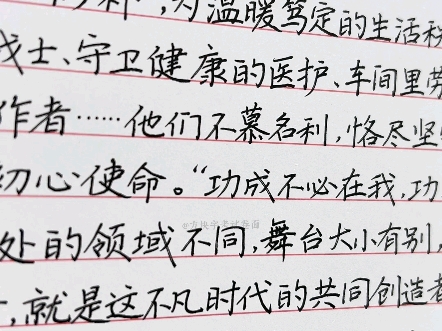 ,为温暖笃定的生活
战士、守卫健康的医护、车间里劳
作者……他们不慕名利,恪尽坚
初心使命。“功成不必在我,功
处的领域不同,舞台大小有别,
,就是这不凡时代的共同创造者